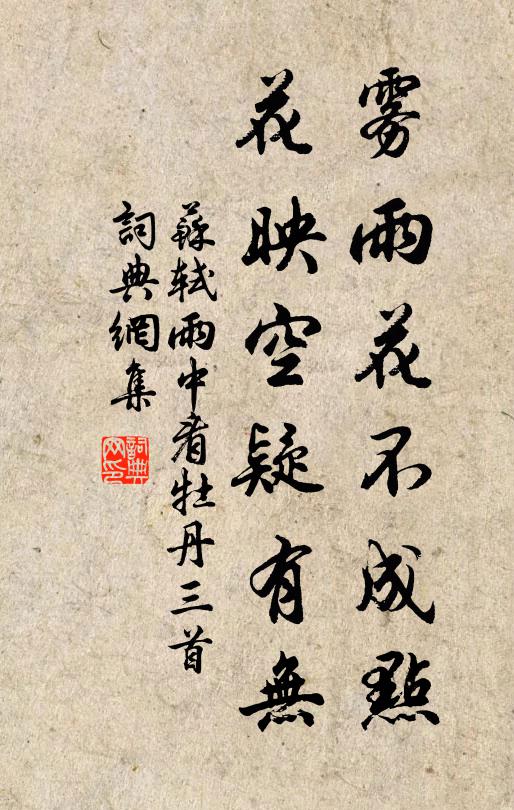 雾雨花不成點
花映空疑有無
蘇軾雨中看牡丹三首
詞典網集
詞典网印